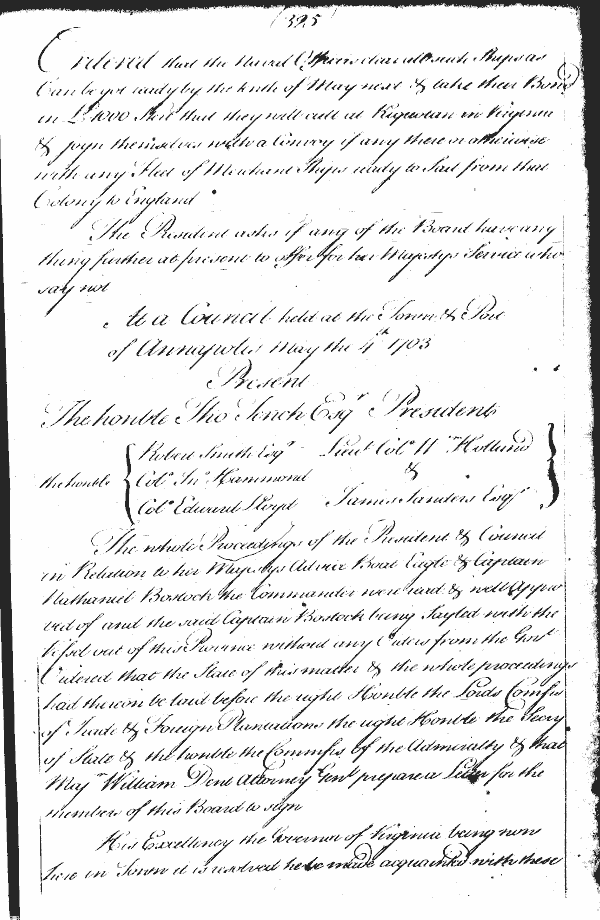 (395)
Ordered that the Naval Officers clear all such Ships as
Can be got ready by the tenth of May next & take their Bond
in Ld 1000 Sterl that they will call at Kiquotan in Virginia
& joyn themselves with a Convoy if any there or otherwise
with any Fleet of Merchant Ships ready to Sail from that
Colony to England
The President asks if any of the Board have any
thing further at present to offer for her Majestys Service who
say not
At a Council held at the Town & Port
of Annapolis May the 4th 1703
Present
The honble Tho Tench Esqr President
the honble { Robert Smith Esqr Lieut Colo Wm Holland }
Colo Jno Hammond &
Colo Edward Lloyd James Sanders Esqr
The whole Proceedings of the President & Council
in Relation to her Majestys Advice Boat Eagle & Captain
Nathaniel Bostock the Commander were read & well Appro
ved of and the said Captain Bostock being Sayled with the
Vessel out of this Province without any Orders from the Govt
Ordered that the State of this matter & the whole proceedings
had thereon be laid before the right Honble the Lords Comssrs
of Trade & Foreign Plantations the right Honble the Secry
of State & the honble the Commssrs of the Admiralty & that
Majr William Dent Attorney Genl prepare a Letter for the
members of this Board to sign
His Excellency the Governor of Virginia being now
here in Town it is resolved he be made acquainted with these